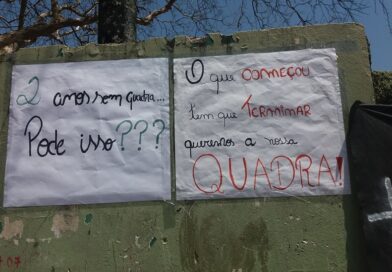 2 anos sem Quadra...
Pode isso???
O que COMEÇOU
tem que TERMINAR
queremos a nossa
QUADRA!
07